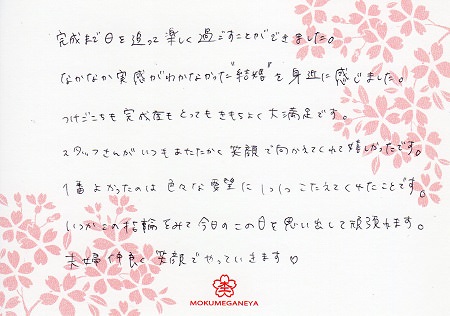 完成まで日を追って楽しく過ごすことができました。
なかなか実感がわかなかった"結婚"を身近に感じました。
つけごこちも完成度もとってもきもちよく大満足です。
スタッフさんがいつもあたたかく笑顔で向かえてくれて嬉しかったです。
1番よかったのは色々な要望に1つ1つこたえてくれたことです。
いつかこの指輪をみて今日のこの日を思い出して頑張ります。
夫婦仲良く笑顔でやっていきます♡
MOKUMEGANEYA